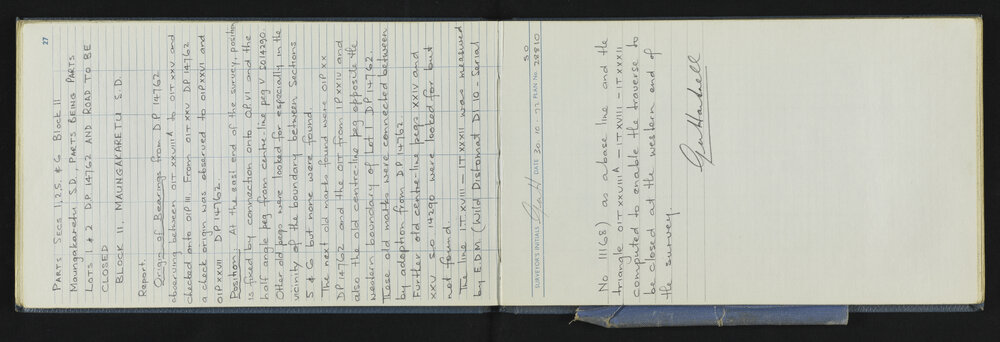 27
PARTS SECS 1, 2, 5, & 6 Block II
Maungakaretu S.D., PARTS BEING PARTS
LOTS 1 & 2 DP 14762 AND ROAD TO BE
CLOSED
BLOCK II, MAUNGAKARETU S.D.
Report.
Origin of Bearings from DP 14762
observing between OIT XXVIIIA to OIT XXV and
checked onto OIP III. From OIT XXV DP 14762
a check origin was observed to OIP XXVI and
OIP XXVII DP 14762.
Position. At the east end of the survey, position
is fixed by connection onto OP VI and the
half angle peg from centre-line peg V SO 14290.
Other old pegs were looked for especially in the
vicinity of the boundary between Sections
5 & 6 but none were found.
The next old marks found were OIP XX
DP 14762 and the OIT from IP XXIV and
also the old centre-line peg opposite the
western boundary of Lot 1 DP 14762.
These old marks were connected between
by adoption from DP 14762.
Further old centre-line pegs XXIV and
XXV SO 14290 were looked for but
not found.
The line IT XVIII - IT XXXII was measured
by EDM (Wild Distomat DI 10 - Serial
SURVEYOR'S INITIALS DATE 30-10-72 PLAN No. SO 28810
No 11168) as a base line and the
triangle OIT XXVIIIA - IT XVIII - IT XXXII
computed to enable the traverse to
be closed at the western end of
the survey.